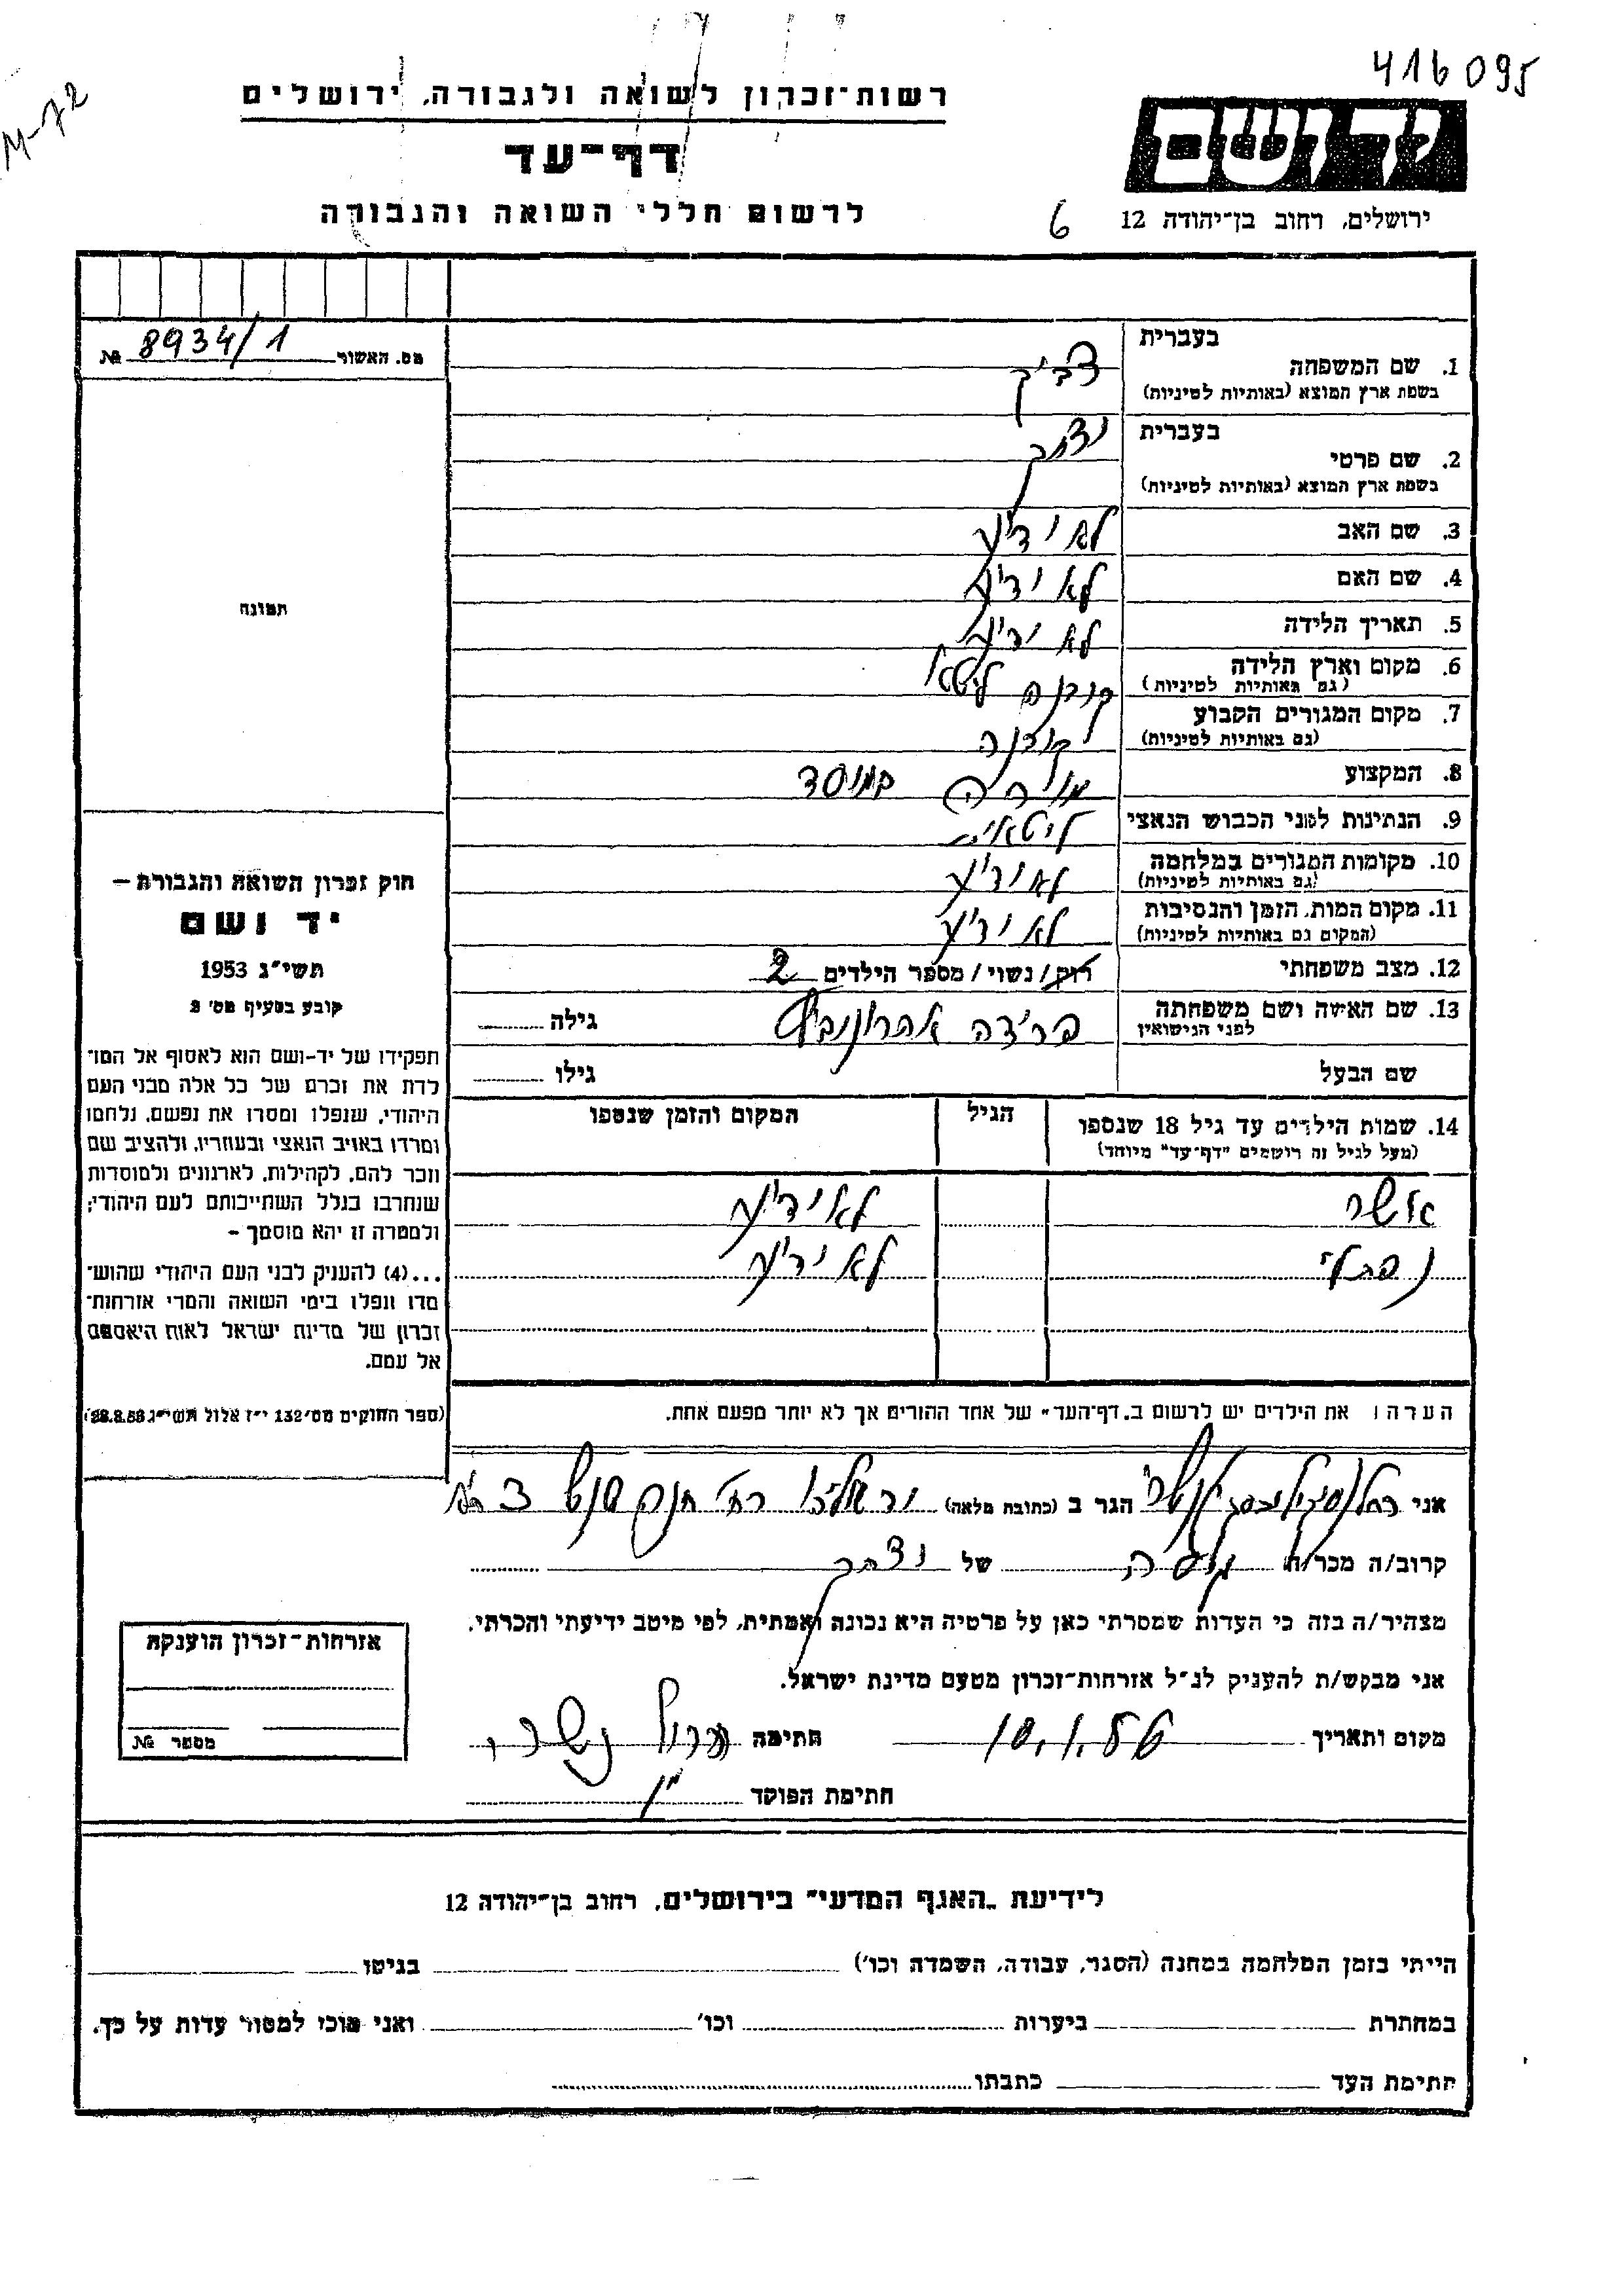 416095
M-72
רשות־זכרון לשואה ולגבורה, ירושלים
יד ושם
דף־עד
לרשום חללי השואה והגבורה
6
ירושלים, רחוב בן־יהודה 12
מס. האשור 8934/1 №
בעברית
1. שם המשפחה
בשפת ארץ המוצא (באותיות לטיניות)
בעברית
יצחק
2. שם פרטי
בשפת ארץ המוצא (באותיות לטיניות)
3. שם האב לא ידוע
4. שם האם לא ידוע
5. תאריך הלידה לא ידוע
6. מקום וארץ הלידה קובנה ליטא
(גם באותיות לטיניות)
7. מקום המגורים הקבוע קובנה
(גם באותיות לטיניות)
8. המקצוע מורה במוסד
9. הנתינות לפני הכבוש הנאצי ליטאית
10. מקומות המגורים במלחמה לא ידוע
(גם באותיות לטיניות)
11. מקום המות, הזמן והנסיבות לא ידוע
(המקום גם באותיות לטיניות)
12. מצב משפחתי רוק/ נשוי / מספר הילדים 2
13. שם האשה ושם משפחתה פרידה אהרונוביץ גילה
לפני הנישואין
שם הבעל גילו
14. שמות הילדים עד גיל 18 שנספו הגיל המקום והזמן שנספו
(מעל לגיל זה רושמים "דף־עד" מיוחד)
אשר לא ידוע
נפתלי לא ידוע
הערה: את הילדים יש לרשום ב„דף־העד" של אחד ההורים אך לא יותר מפעם אחת.
תמונה
חוק זכרון השואה והגבורה —
יד ושם
תשי"ג 1953
קובע בסעיף מס' 2
תפקידו של יד-ושם הוא לאסוף אל המו־
לדת את זכרם של כל אלה מבני העם
היהודי, שנפלו ומסרו את נפשם, נלחמו
ומרדו באויב הנאצי ובעוזריו, ולהציב שם
וזכר להם, לקהילות, לארגונים ולמוסדות
שנחרבו בגלל השתייכותם לעם היהודי;
ולמטרה זו יהא מוסמך -
...(4) להעניק לבני העם היהודי שהוש־
מדו ונפלו בימי השואה והמרי אזרחות־
זכרון של מדינת ישראל לאות היאספם
אל עמם.
(ספר החוקים מס' 132 י"ז אלול תשי"ג 28.8.53)
אני הגר ב (כתובת מלאה)
קרוב/ה מכר/ה של יצחק
מצהיר/ה בזה כי העדות שמסרתי כאן על פרטיה היא נכונה ואמתית, לפי מיטב ידיעתי והכרתי.
אני מבקש/ת להעניק לנ"ל אזרחות־זכרון מטעם מדינת ישראל.
מקום ותאריך חתימה
חתימת הפוקד
אזרחות־זכרון הוענקה
מספר №
לידיעת „האגף המדעי" בירושלים, רחוב בן־יהודה 12
הייתי בזמן המלחמה במחנה (הסגר, עבודה, השמדה וכו') בגיטו
במחתרת ביערות וכו' ואני מוכן למסור עדות על כך.
חתימת העד כתבתו